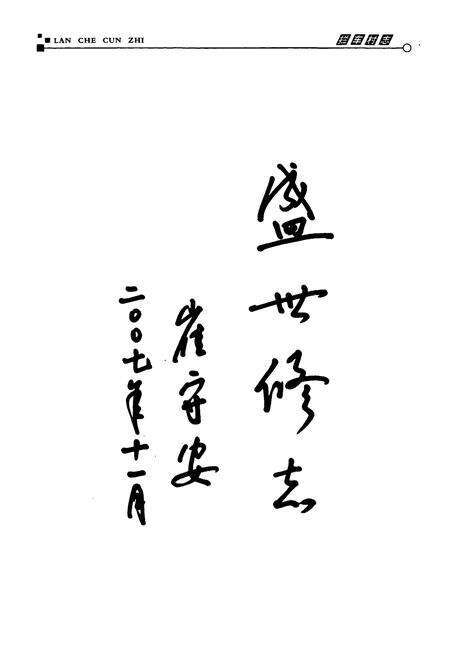 LAN CHE CUN ZHI
拦车村志
盛世修志
崔守安
二〇〇七年十一月